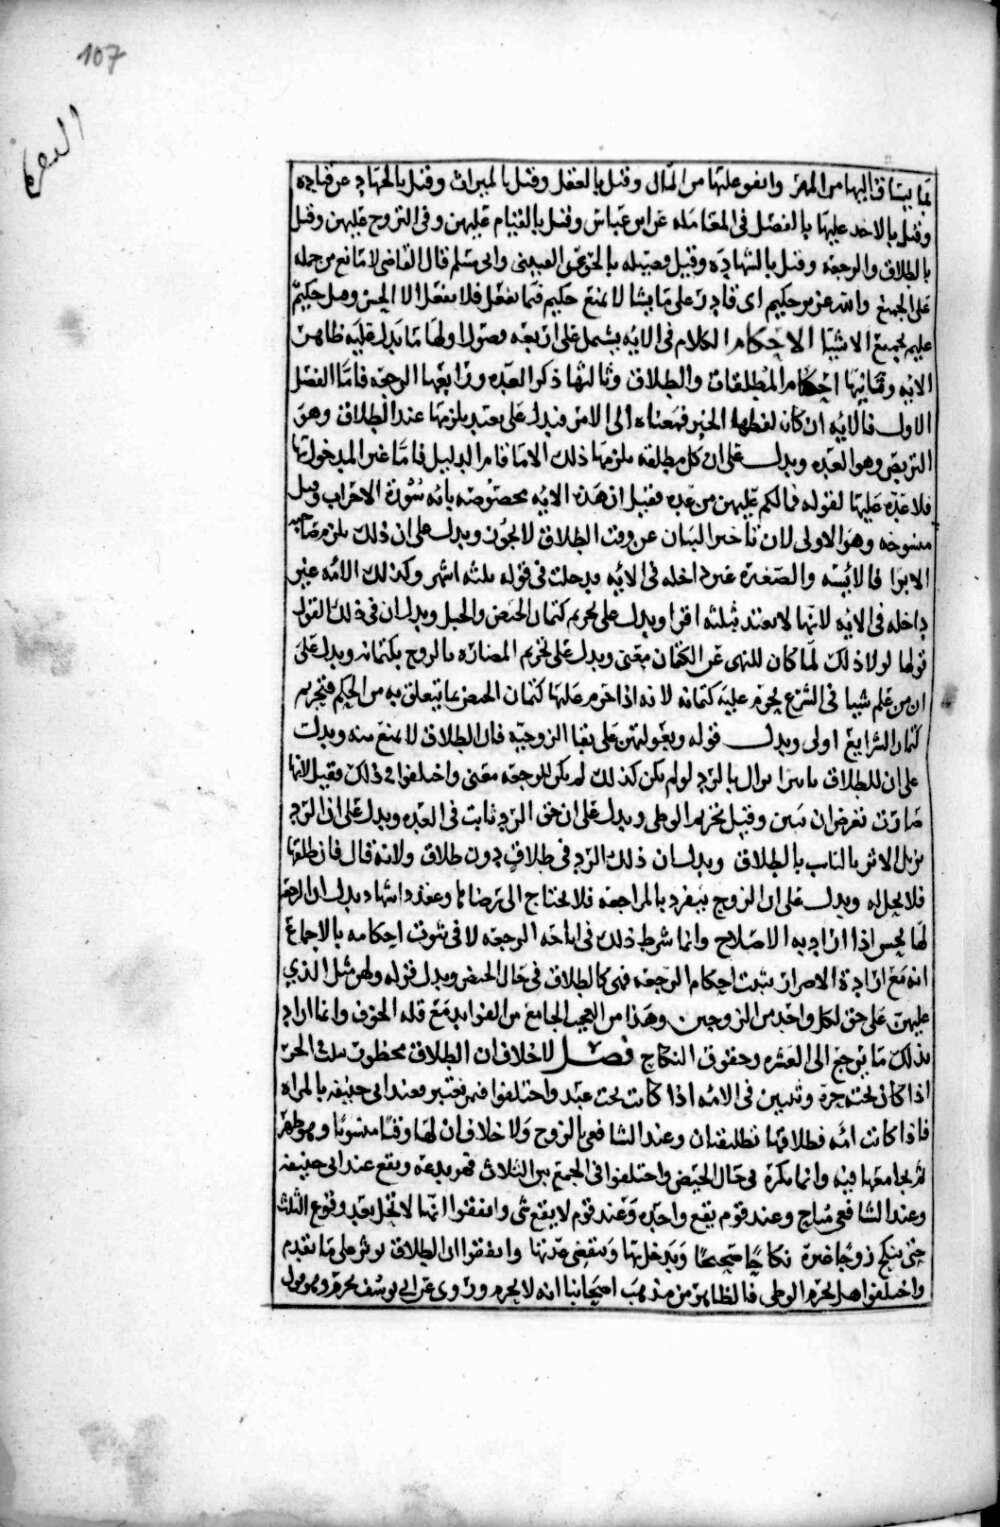 107
بما يساق اليها من المهر وانفق عليها من المال وقيل بالعقل وقيل بالميراث وقيل بالجهاد عن قتاده
وقيل بالاخد عليها بالفضل في المعامله عن ابن عباس وقيل بالقيام عليهن وفي التزوج عليهن وقيل
بالطلاق والرجعه وقيل بالشهاده وقيل فضيله بالحق عن القتيبي وابي مسلم قال القاضي لا مانع من حمله
على الجميع والله عزيز حكيم اي قادر على ما يشا لا يمنع حكيم فيما يفعل فلا يفعل الا الحسن وقيل حكيم
عليم بجميع الاشيا الاحكام الكلام في الايه يشمل على اربعه فصول اولها ما يدل عليه ظاهر
الايه وثانيها احكام المطلقات والطلاق وثالثها ذكر العده ورابعها الرجعه فاما الفصل
الاول فالايه ان كان لفظها الخبر فمعناه الى الامر فيدل على تعبد يلزمها عند الطلاق وهو
التربص وهو العده ويدل على ان كل مطلقه يلزمها ذلك الا ما قام الدليل فاما غير المدخول بها
فلا عده عليها لقوله فما لكم عليهن من عده فقيل ان هذه الايه مخصوصه بايه سورة الاحزاب وقيل
منسوخه وهو الاولى لان تاخير البيان عن وقت الطلاق لا يجوز ويدل على ان ذلك يلزم صاحبه
الاقرا فالايسه والصغيره غير داخله في الايه ودخلت في قوله ثلثه اشهر وكذلك الامه غير
داخله في الايه لانها لا تعتد بثلثه اقرا ويدل على تحريم كتمان الحيض والحبل ويدل ان في ذلك القول
قولها لولا ذلك لما كان للنهي عن الكتمان معنى ويدل على تحريم المضاره بالزوج بكتمانه ويدل على
ان من علم شيا في الشرع يحرم عليه كتمانه لانه اذا حرم عليها كتمان الحيض لما يتعلق به من الحكم فتحريم
كتمان الشرايع اولى ويدل قوله وبعولتهن على بقا الزوجيه فان الطلاق لا يمنع منه ويدل
على ان للطلاق تاثيرا يزال بالرد لو لم يكن كذلك لم يكن للرجعه معنى واختلفوا في ذلك فقيل لانها
صارت تعرض ان تبين وقيل تحريم الوطي ويدل على ان حق الرد ثابت في العده ويدل على ان الرد
يزيل الاثر الثابت بالطلاق ويدل ان ذلك الرد في طلاق دون طلاق ولانه قال فان طلقها
فلا تحل له ويدل على ان الزوج ينفرد بالمراجعه فلا يحتاج الى رضاها وعقد واشهاد ويدل ان الرجعه
انما يحسن اذا اراد به الاصلاح وانما شرط ذلك في اباحه الرجعه لا في ثبوت احكامه بالاجماع
انه مع ارادة الاضرار يثبت احكام الرجعه فهي كالطلاق في حال الحيض ويدل قوله ولهن مثل الذي
عليهن على حق لكل واحد من الزوجين وهذا من العجيب الجامع من الفوايد مع قله الحروف وانما اراد
بذلك ما يرجع الى العشره وحقوق النكاح فصل لا خلاف ان الطلاق محظور ثلث الحر
اذا كان تحته حرة وثنتين في الامه اذا كانت تحت عبد واختلفوا فيمن يعتبر فعند ابي حنيفه بالمراه
فاذا كانت امه فطلاقها تطليقتان وعند الشافعي بالزوج ولا خلاف ان لها وقتا مسنونا وهو طهر
لم يجامعها فيه وانما يكره في حال الحيض واختلفوا في الجمع بين الثلاث فهو بدعه ويقع عند ابي حنيفه
وعند الشافعي مباح وعند قوم يقع واحده وعند قوم لا يقع شي واتفقوا انها لا تحل بعد وقوع الثلث
حتى ينكح زوجا غيره نكاحا صحيحا ويدخل بها وتنقضي عدتها واتفقوا ان الطلاق يوثر على ما تقدم
واختلفوا هل يحرم الوطي فالظاهر من مذهب اصحابنا انه لا يحرم وروي عن ابي يوسف يحرم وهو قول